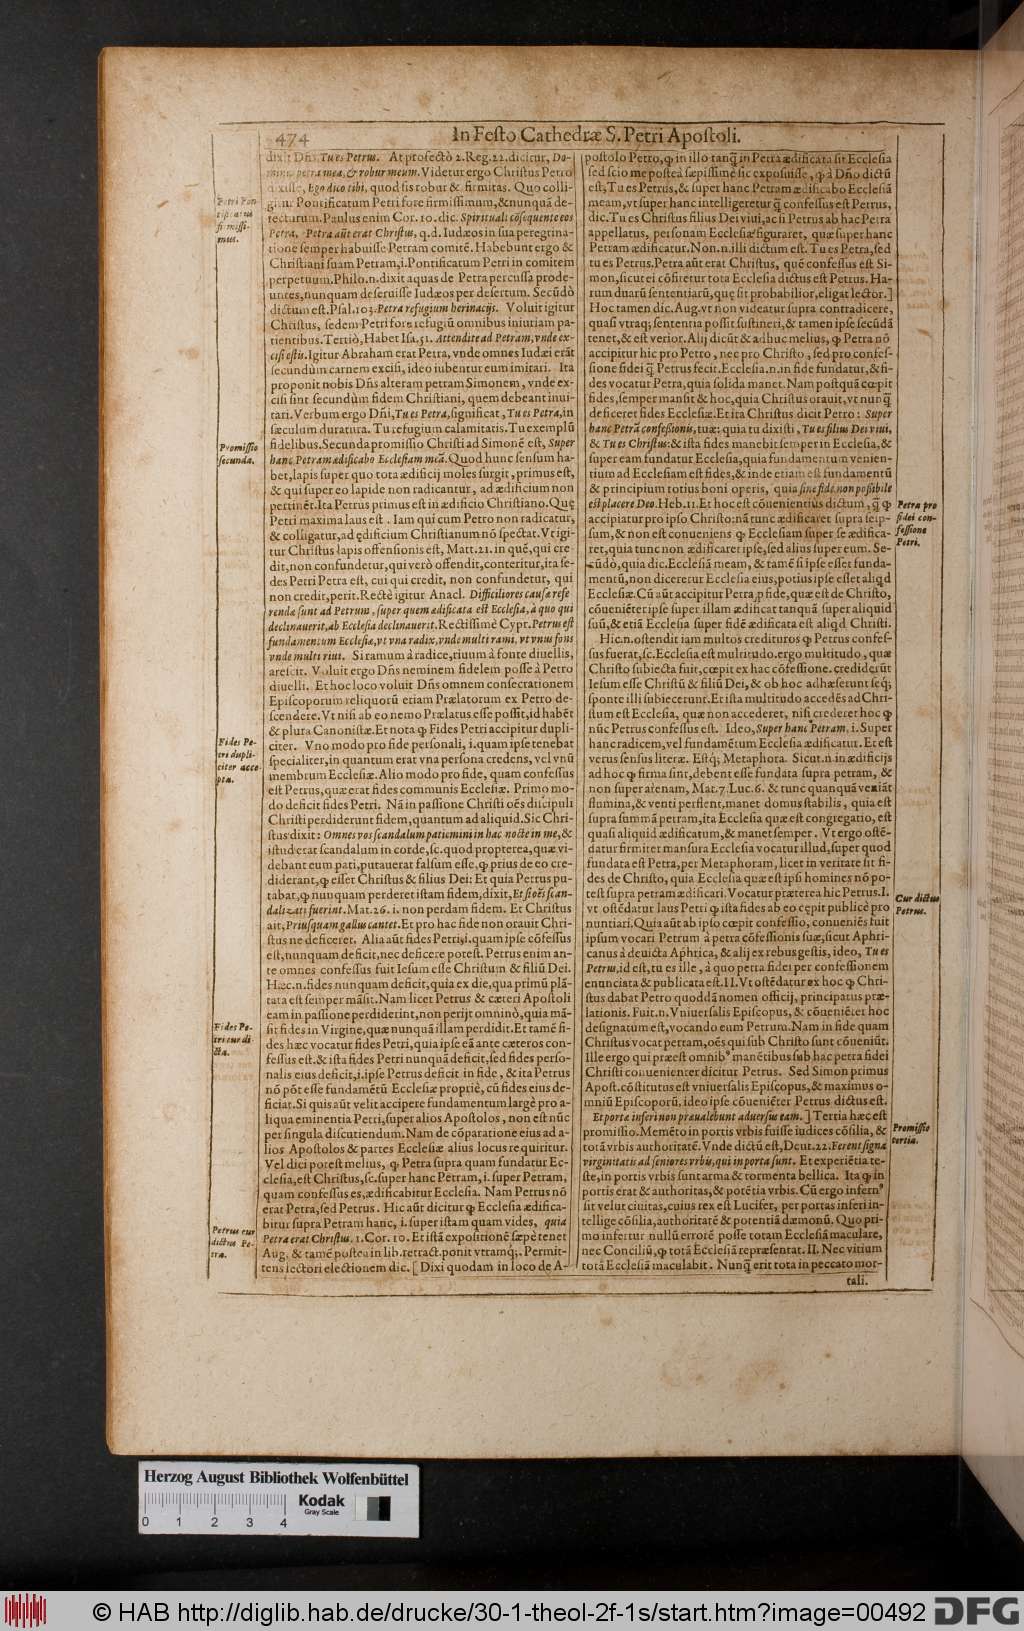 474
In Festo Cathedræ S. Petri Apostoli.
dixit Dñs, Tu es Petrus. At profectò 2. Reg. 22. dicitur, Do-
minus petra mea, & robur meum. Videtur ergo Christus Petro
dixisse, Ego dico tibi, quod sis robur & firmitas. Quo colli-
gitur Pontificatum Petri fore firmissimum, & nunquã de-
recturum. Paulus enim Cor. 10. dic. Spirituali cõsequente eos
Petra. Petra aũt erat Christus, q.d. Iudæos in sua peregrina-
tione semper habuisse Petram comitẽ. Habebunt ergo &
Christiani suam Petram, i. Pontificatum Petri in comitem
perpetuum. Philo. n. dixit aquas de Petra percussa prode-
untes, nunquam deseruisse Iudæos per desertum. Secũdò
dictum est. Psal. 103. Petra refugium herinacijs. Voluit igitur
Christus, sedem Petri fore refugiũ omnibus iniuriam pa-
tientibus. Tertiò, Habet Isa. 51. Attendite ad Petram, vnde ex-
cisi estis. Igitur Abraham erat Petra, vnde omnes Iudæi erãt
secundùm carnem excisi, ideo iubentur eum imitari. Ita
proponit nobis Dñs alteram petram Simonem, vnde ex-
cisi sint secundùm fidem Christiani, quem debeant inui-
tari. Verbum ergo Dñi, Tu es Petra, significat, Tu es Petra, in
sæculum duratura. Tu refugium calamitatis. Tu exemplũ
fidelibus. Secunda promissio Christi ad Simonẽ est, Super
hanc Petram ædificabo Ecclesiam meã. Quod hunc sensum ha-
bet, lapis super quo tota ædificij moles surgit, primus est,
& qui super eo lapide non radicantur, ad ædificium non
pertinẽt. Ita Petrus primus est in ædificio Christiano. Quę
Petri maxima laus est. Iam qui cum Petro non radicatur,
& colligatur, ad ędificium Christianum nõ spectat. Vt igi-
tur Christus lapis offensionis est, Matt. 21. in quẽ, qui cre-
dit, non confundetur, qui verò offendit, conteritur, ita se-
des Petri Petra est, cui qui credit, non confundetur, qui
non credit, perit. Rectè igitur Anacl. Difficiliores causæ refe
rendæ sunt ad Petrum, super quem ædificata est Ecclesia, à quo qui
declinauerit, ab Ecclesia declinauerit. Rectissimè Cypr. Petrus est
fundamentum Ecclesiæ, vt vna radix, vnde multi rami, vt vnus fons
vnde multi riui. Si ramum à radice, riuum à fonte diuellis,
arescit. Voluit ergo Dñs neminem fidelem posse à Petro
diuelli. Et hoc loco voluit Dñs omnem consecrationem
Episcoporum reliquorũ etiam Prælatorum ex Petro de-
scendere. Vt nisi ab eo nemo Prælatus esse possit, id habẽt
& plura Canonistæ. Et nota ꝙ Fides Petri accipitur dupli-
citer. Vno modo pro fide personali, i. quam ipse tenebat
specialiter, in quantum erat vna persona credens, vel vnũ
membrum Ecclesiæ. Alio modo pro fide, quam confessus
est Petrus, quæ erat fides communis Ecclesiæ. Primo mo-
do deficit fides Petri. Nã in passione Christi oẽs discipuli
Christi perdiderunt fidem, quantum ad aliquid. Sic Chri-
stus dixit: Omnes vos scandalum patiemini in hac nocte in me, &
istud erat scandalum in corde, sc. quod propterea, quæ vi-
debant eum pati, putauerat falsum esse, ꝙ prius de eo cre-
diderant, ꝙ esset Christus & filius Dei: Et quia Petrus pu-
tabat, ꝙ nunquam perderet istam fidem, dixit, Et si oẽs scan-
dalizati fuerint. Mat. 26. i. non perdam fidem. Et Christus
ait, Priusquam gallus cantet. Et pro hac fide non orauit Chri-
stus ne deficeret. Alia aũt fides Petri, i. quam ipse cõfessus
est, nunquam deficit, nec deficere potest. Petrus enim an-
te omnes confessus fuit Iesum esse Christum & filiũ Dei.
Hæc. n. fides nunquam deficit, quia ex die, qua primũ plã-
tata est semper mãsit. Nam licet Petrus & cæteri Apostoli
eam in passione perdiderint, non perijt omninò, quia mã-
sit fides in Virgine, quæ nunquã illam perdidit. Et tamẽ fi-
des hæc vocatur fides Petri, quia ipse eã ante cæteros con-
fessus est. & ista fides Petri nunquã deficit, sed fides perso-
nalis eius deficit, i. ipse Petrus deficit in fide, & ita Petrus
nõ põt esse fundamẽtũ Ecclesiæ propriè, cũ fides eius de-
ficiat. Si quis aũt velit accipere fundamentum largè pro a-
liqua eminentia Petri, super alios Apostolos, non est nũc
per singula discutiendum. Nam de cõparatione eius ad a-
lios Apostolos & partes Ecclesiæ alius locus requiritur.
Vel dici potest melius, ꝙ Petra supra quam fundatur Ec-
clesia, est Christus, sc. super hanc Petram, i. super Petram,
quam confessus es, ædificabitur Ecclesia. Nam Petrus nõ
erat Petra, sed Petrus. Hic aũt dicitur ꝙ Ecclesia ædifica-
bitur supra Petram hanc, i. super istam quam vides, quia
Petra erat Christus. 1. Cor. 10. Et istã expositionẽ sæpè tenet
Aug. & tamẽ postea in lib. retract. ponit vtramq;. Permit-
tens lectori electionem dic. [ Dixi quodam in loco de A-
Petri Pon-
tificatus
firmissi-
mus.
Promissio
secunda.
Fides Pe-
tri dupli-
citer acce-
pta.
Fides Pe-
tri cur di-
cta.
Petrus cur
dictus Pe-
tra.
postolo Petro, ꝙ in illo tanq̃ in Petra ædificata sit Ecclesia
sed scio me posteà sæpissimè sic exposuisse, ꝙ à Dño dictũ
est, Tu es Petrus, & super hanc Petram ædificabo Ecclesiã
meam, vt super hanc intelligeretur q̃ confessus est Petrus,
dic. Tu es Christus filius Dei viui, ac si Petrus ab hac Petra
appellatus, personam Ecclesiæ figuraret, quæ super hanc
Petram ædificatur. Non. n. illi dictum est. Tu es Petra, sed
tu es Petrus. Petra aũt erat Christus, quẽ confessus est Si-
mon, sicut ei cõfitetur tota Ecclesia dictus est Petrus. Ha-
rum duarũ sententiarũ, quę sit probabilior, eligat lector.]
Hoc tamen dic. Aug. vt non videatur supra contradicere,
quasi vtraq; sententia possit sustineri, & tamen ipse secũdã
tenet, & est verior. Alij dicũt & adhuc melius, ꝙ Petra nõ
accipitur hic pro Petro, nec pro Christo, sed pro confes-
sione fidei q̃ Petrus fecit. Ecclesia. n. in fide fundatur, & fi-
des vocatur Petra, quia solida manet. Nam postquã cœpit
fides, semper mansit & hoc, quia Christus orauit, vt nunq̃
deficeret fides Ecclesiæ. Et ita Christus dicit Petro: Super
hanc Petrã confessionis, tuæ: quia tu dixisti, Tu es filius Dei viui,
& Tu es Christus: & ista fides manebit semper in Ecclesia, &
super eam fundatur Ecclesia, quia fundamentum venien-
tium ad Ecclesiam est fides, & inde etiam est fundamentũ
& principium totius boni operis, quia sine fide non possibile
est placere Deo. Heb. 11. Et hoc est cõuenientius dictum, q̃ ꝙ
accipiatur pro ipso Christo: nã tunc ædificaret supra seip-
sum, & non est conueniens ꝙ Ecclesiam super se ædifica-
ret, quia tunc non ædificaret ipse, sed alius super eum. Se-
cũdò, quia dic. Ecclesiã meam, & tamẽ si ipse esset funda-
mentũ, non diceretur Ecclesia eius, potius ipse esset aliq̃d
Ecclesiæ. Cũ aũt accipitur Petra, p fide, quæ est de Christo,
cõueniẽter ipse super illam ædificat tanquã super aliquid
suũ, & etiã Ecclesia super fidẽ ædificata est aliq̃d Christi.
Hic. n. ostendit iam multos credituros ꝙ Petrus confes-
sus fuerat, sc. Ecclesia est multitudo. ergo multitudo, quæ
Christo subiecta fuit, cœpit ex hac cõfessione. crediderũt
Iesum esse Christũ & filiũ Dei, & ob hoc adhæserunt seq;
sponte illi subiecerunt. Et ista multitudo accedẽs ad Chri-
stum est Ecclesia, quæ non accederet, nisi crederet hoc ꝙ
nũc Petrus confessus est. Ideo, Super hanc Petram, i. Super
hanc radicem, vel fundamẽtum Ecclesia ædificatur. Et est
verus sensus literæ. Estq; Metaphora. Sicut. n. in ædificijs
ad hoc ꝙ firma sint, debent esse fundata supra petram, &
non super arenam, Mat. 7. Luc. 6. & tunc quanquã veniãt
flumina, & venti perflent, manet domus stabilis, quia est
supra summã petram, ita Ecclesia quæ est congregatio, est
quasi aliquid ædificatum, & manet semper. Vt ergo ostẽ-
datur firmiter mansura Ecclesia vocatur illud, super quod
fundata est Petra, per Metaphoram, licet in veritate sit fi-
des de Christo, quia Ecclesia quæ est ipsi homines nõ po-
test supra petram ædificari. Vocatur præterea hic Petrus. I.
vt ostẽdatur laus Petri ꝙ ista fides ab eo cępit publicè pro
nuntiari. Quia aũt ab ipso cœpit confessio, conueniẽs fuit
ipsum vocari Petrum à petra cõfessionis suæ, sicut Aphri-
canus à deuicta Aphrica, & alij ex rebus gestis, ideo, Tu es
Petrus, id est, tu es ille, à quo petra fidei per confessionem
enunciata & publicata est. II. Vt ostẽdatur ex hoc ꝙ Chri-
stus dabat Petro quoddã nomen officij, principatus præ-
lationis. Fuit. n. Vniuersalis Episcopus, & cõueniẽter hoc
designatum est, vocando eum Petrum. Nam in fide quam
Christus vocat petram, oẽs qui sub Christo sunt cõueniũt.
Ille ergo qui præest omnib⁹ manẽtibus sub hac petra fidei
Christi conuenienter dicitur Petrus. Sed Simon primus
Apost. cõstitutus est vniuersalis Episcopus, & maximus o-
mniũ Episcoporũ, ideo ipse cõueniẽter Petrus dictus est.
Et portæ inferi non præualebunt aduersus eam. ] Tertia hæc est
promissio. Memẽto in portis vrbis fuisse iudices cõsilia, &
totã vrbis authoritatẽ. Vnde dictũ est, Deut. 22. Ferent signa
virginitatis ad seniores vrbis, qui in porta sunt. Et experiẽtia te-
ste, in portis vrbis sunt arma & tormenta bellica. Ita ꝙ in
portis erat & authoritas, & potẽtia vrbis. Cũ ergo infern⁹
sit velut ciuitas, cuius rex est Lucifer, per portas inferi in-
tellige cõsilia, authoritatẽ & potentiã dæmonũ. Quo pri-
mo infertur nullũ errorẽ posse totam Ecclesiã maculare,
nec Conciliũ, ꝙ totã Ecclesiã repræsentat. II. Nec vitium
totã Ecclesiã maculabit. Nunq̃ erit tota in peccato mor-
tali.
Petra pro
fidei con-
fessione
Petri.
Cur dictus
Petrus.
Promissio
tertia.
Herzog August Bibliothek Wolfenbüttel
Kodak
Gray Scale
0 1 2 3 4
© HAB http://diglib.hab.de/drucke/30-1-theol-2f-1s/start.htm?image=00492
DFG